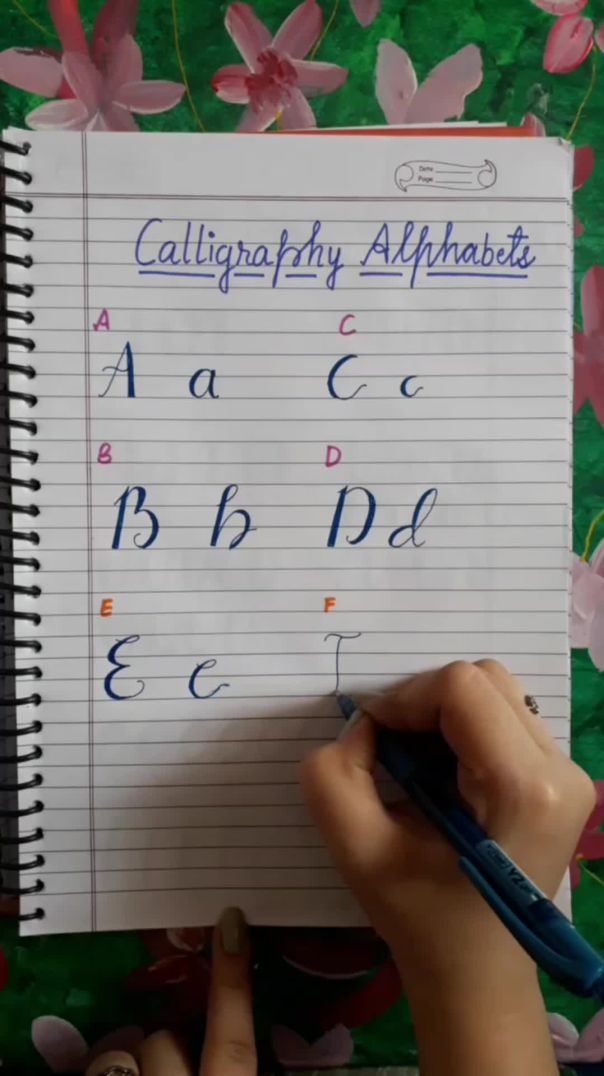 Date
Page
Calligraphy Alphabets
A C
A a C c
B D
B b D d
E F
E e